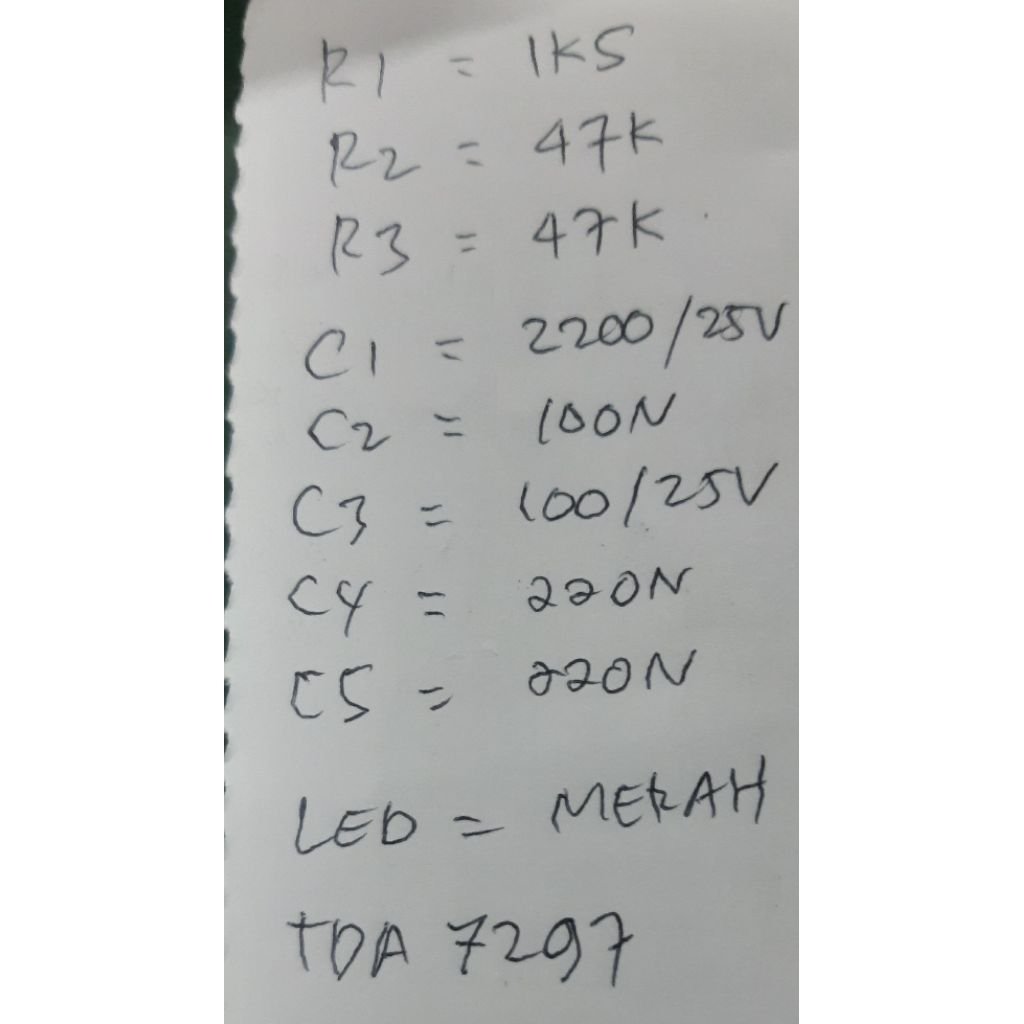 R1 = 1K5
R2 = 47K
R3 = 47K
C1 = 2200/25V
C2 = 100N
C3 = 100/25V
C4 = 220N
C5 = 220N
LED = MERAH
TDA 7297